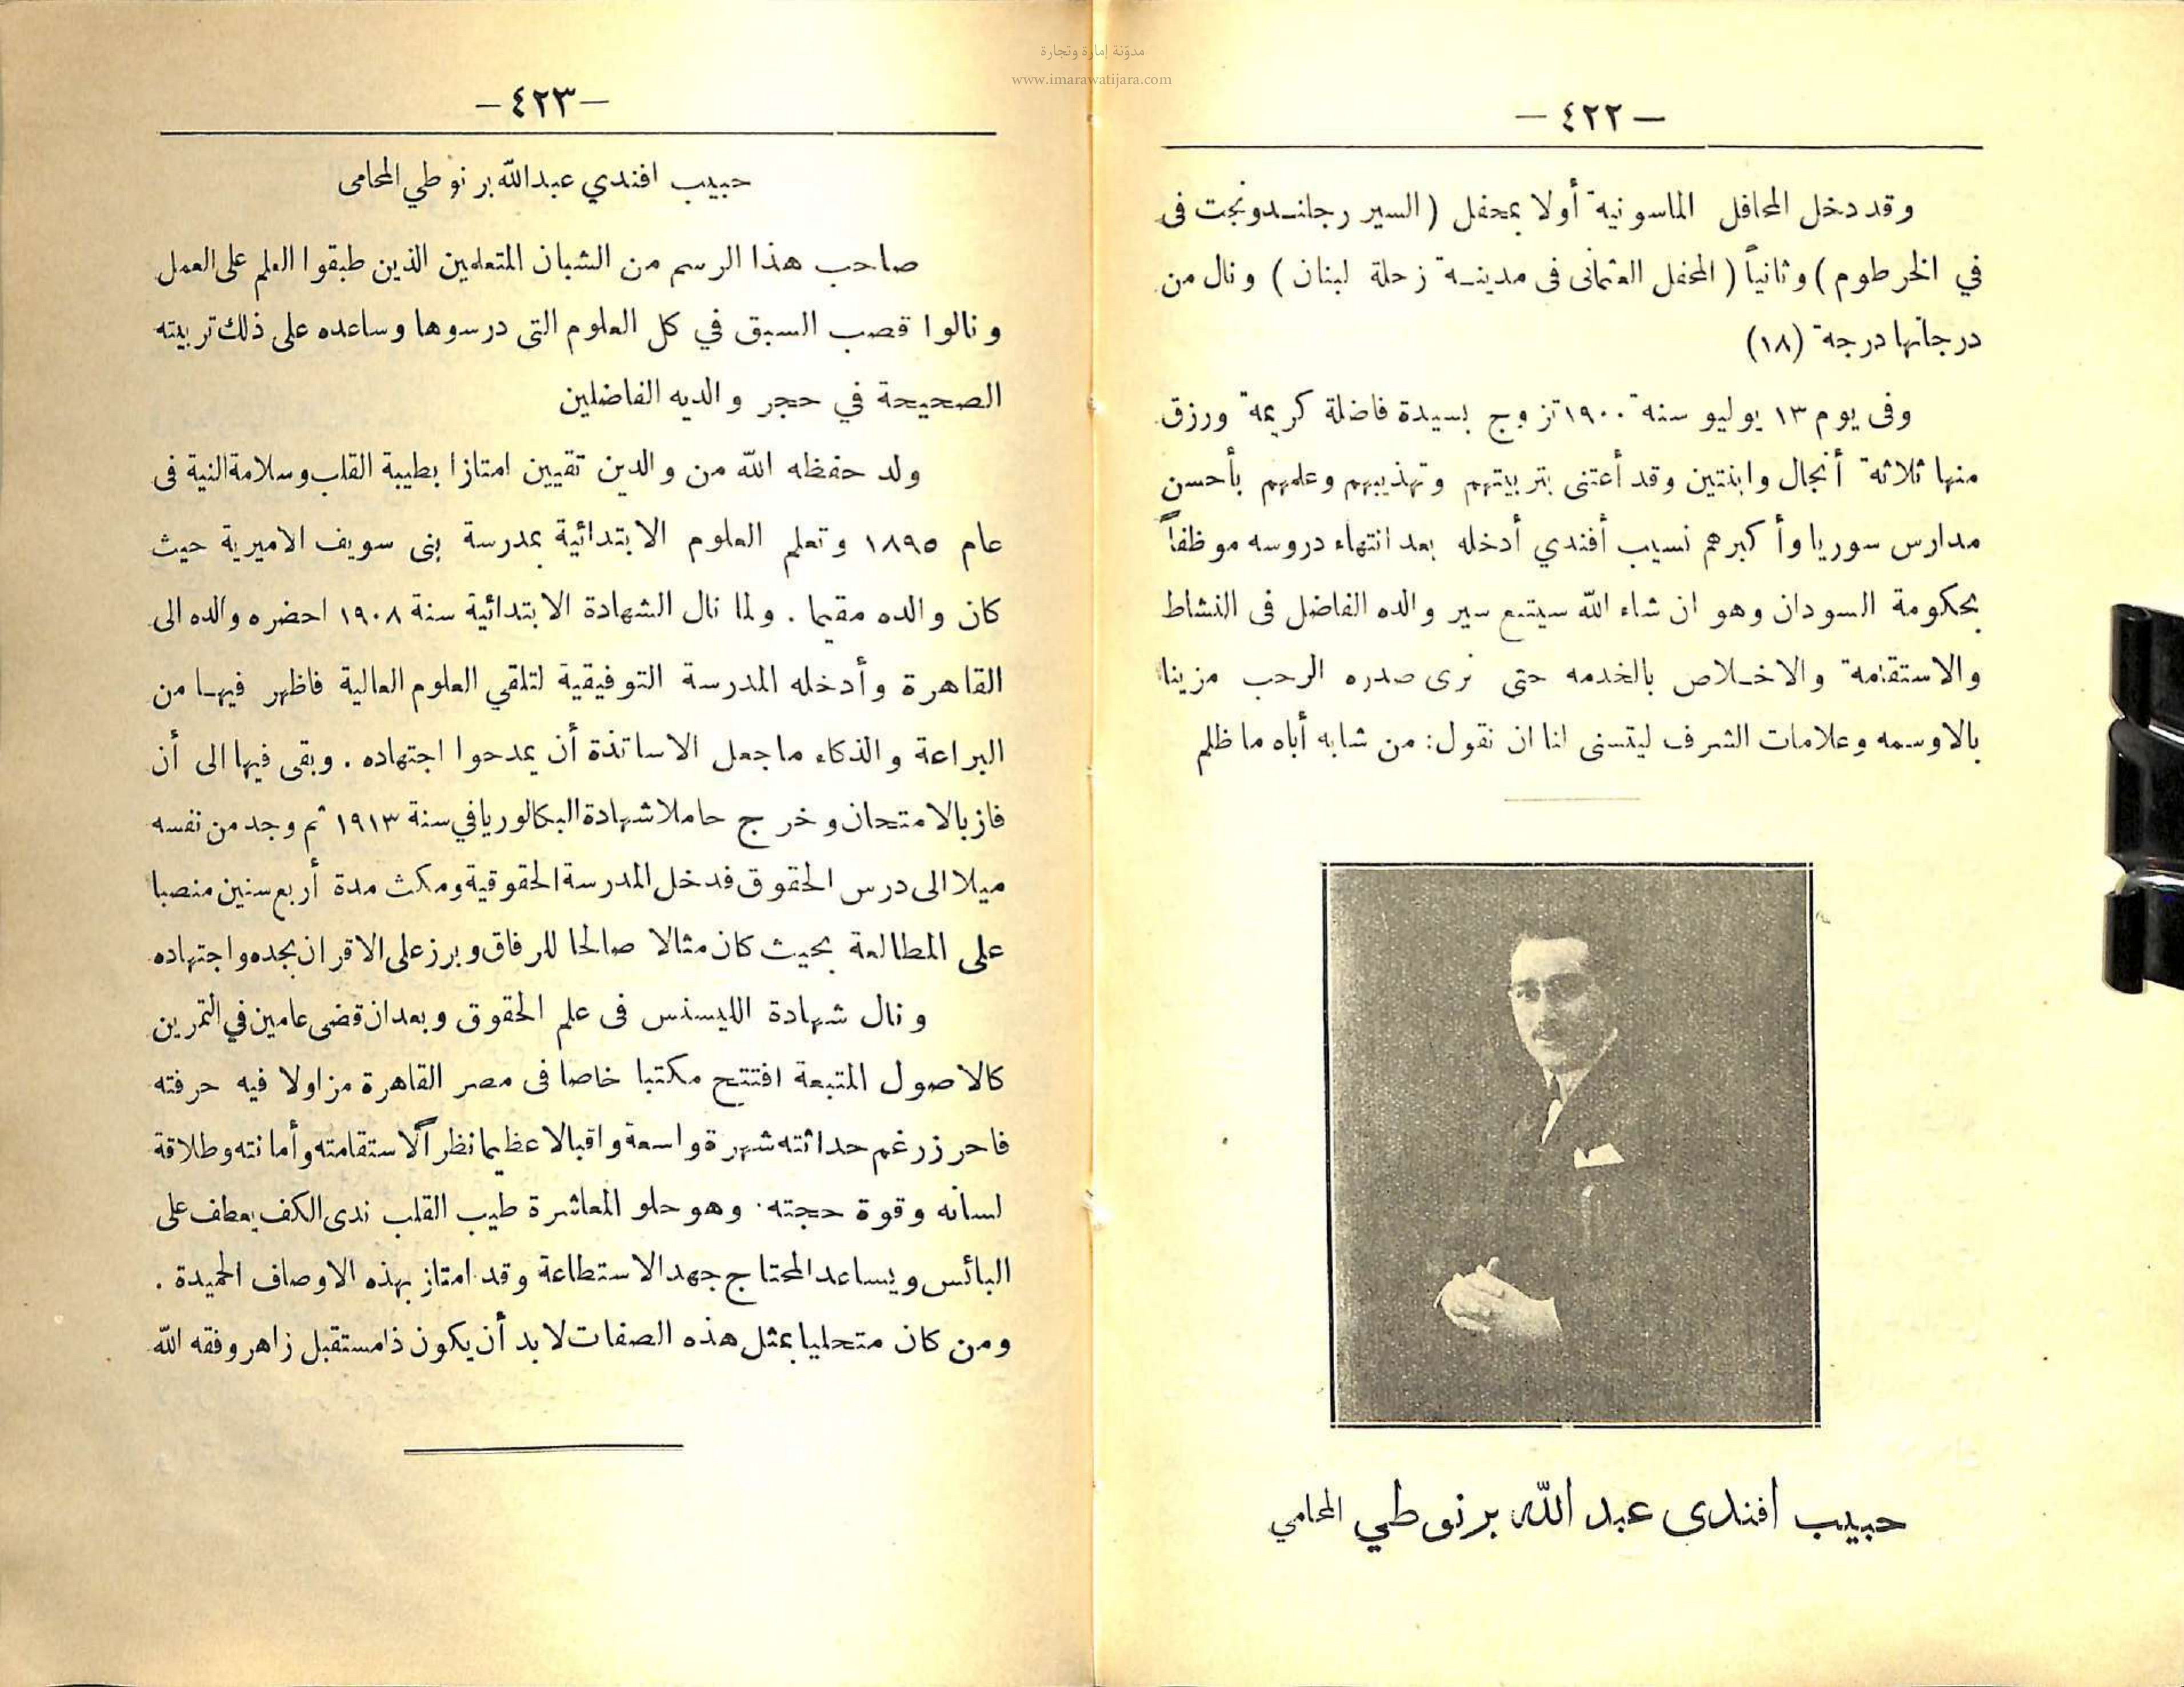 مدوّنة إمارة وتجارة
www.imarawatijara.com
— ٤٢٢ —
وقد دخل المحافل الماسونية أولا بمحفل ( السير رجاندونجت فى
في الخرطوم ) وثانياً ( المحفل العثمانى فى مدينة زحلة لبنان ) ونال من
درجاتها درجة (١٨)
وفى يوم ١٣ يوليو سنة ١٩٠٠ تزوج بسيدة فاضلة كريمة ورزق
منها ثلاثة أنجال وابنتين وقد أعتنى بتربيتهم وتهذيبهم وعلمهم بأحسن
مدارس سوريا وأكبرهم نسيب أفندي أدخله بعد انتهاء دروسه موظفاً
بحكومة السودان وهو ان شاء الله سيتبع سير والده الفاضل فى النشاط
والاستقامة والاخلاص بالخدمه حتى نرى صدره الرحب مزينا
بالاوسمه وعلامات الشرف ليتسنى لنا ان نقول: من شابه أباه ما ظلم
حبيب افندى عبد الله برنوطي المحامي
— ٤٢٣ —
حبيب افندي عبد الله برنوطي المحامى
صاحب هذا الرسم من الشبان المتعلمين الذين طبقوا العلم على العمل
ونالوا قصب السبق في كل العلوم التى درسوها وساعده على ذلك تربيته
الصحيحة في حجر والديه الفاضلين
ولد حفظه الله من والدين تقيين امتازا بطيبة القلب وسلامة النية فى
عام ١٨٩٥ وتعلم العلوم الابتدائية بمدرسة بنى سويف الاميرية حيث
كان والده مقيما . ولما نال الشهادة الابتدائية سنة ١٩٠٨ احضره والده الى
القاهرة وأدخله المدرسة التوفيقية لتلقي العلوم العالية فاظهر فيها من
البراعة والذكاء ما جعل الاساتذة أن يمدحوا اجتهاده . وبقى فيها الى أن
فاز بالامتحان وخرج حاملا شهادة البكالوريا في سنة ١٩١٣ ثم وجد من نفسه
ميلا الى درس الحقوق فدخل المدرسة الحقوقية ومكث مدة أربع سنين منصبا
على المطالعة بحيث كان مثالا صالحا للرفاق وبرز على الاقران بجده واجتهاده
ونال شهادة الليسنس فى علم الحقوق وبعد ان قضى عامين في التمرين
كالاصول المتبعة افتتح مكتبا خاصا فى مصر القاهرة مزاولا فيه حرفته
فاحرز رغم حداثته شهرة واسعة واقبالا عظيما نظراً لاستقامته وأمانته وطلاقة
لسانه وقوة حجته . وهو حلو المعاشرة طيب القلب ندى الكف يعطف على
البائس ويساعد المحتاج جهد الاستطاعة وقد امتاز بهذه الاوصاف الحميدة .
ومن كان متحليا بمثل هذه الصفات لا بد أن يكون ذا مستقبل زاهر وفقه الله